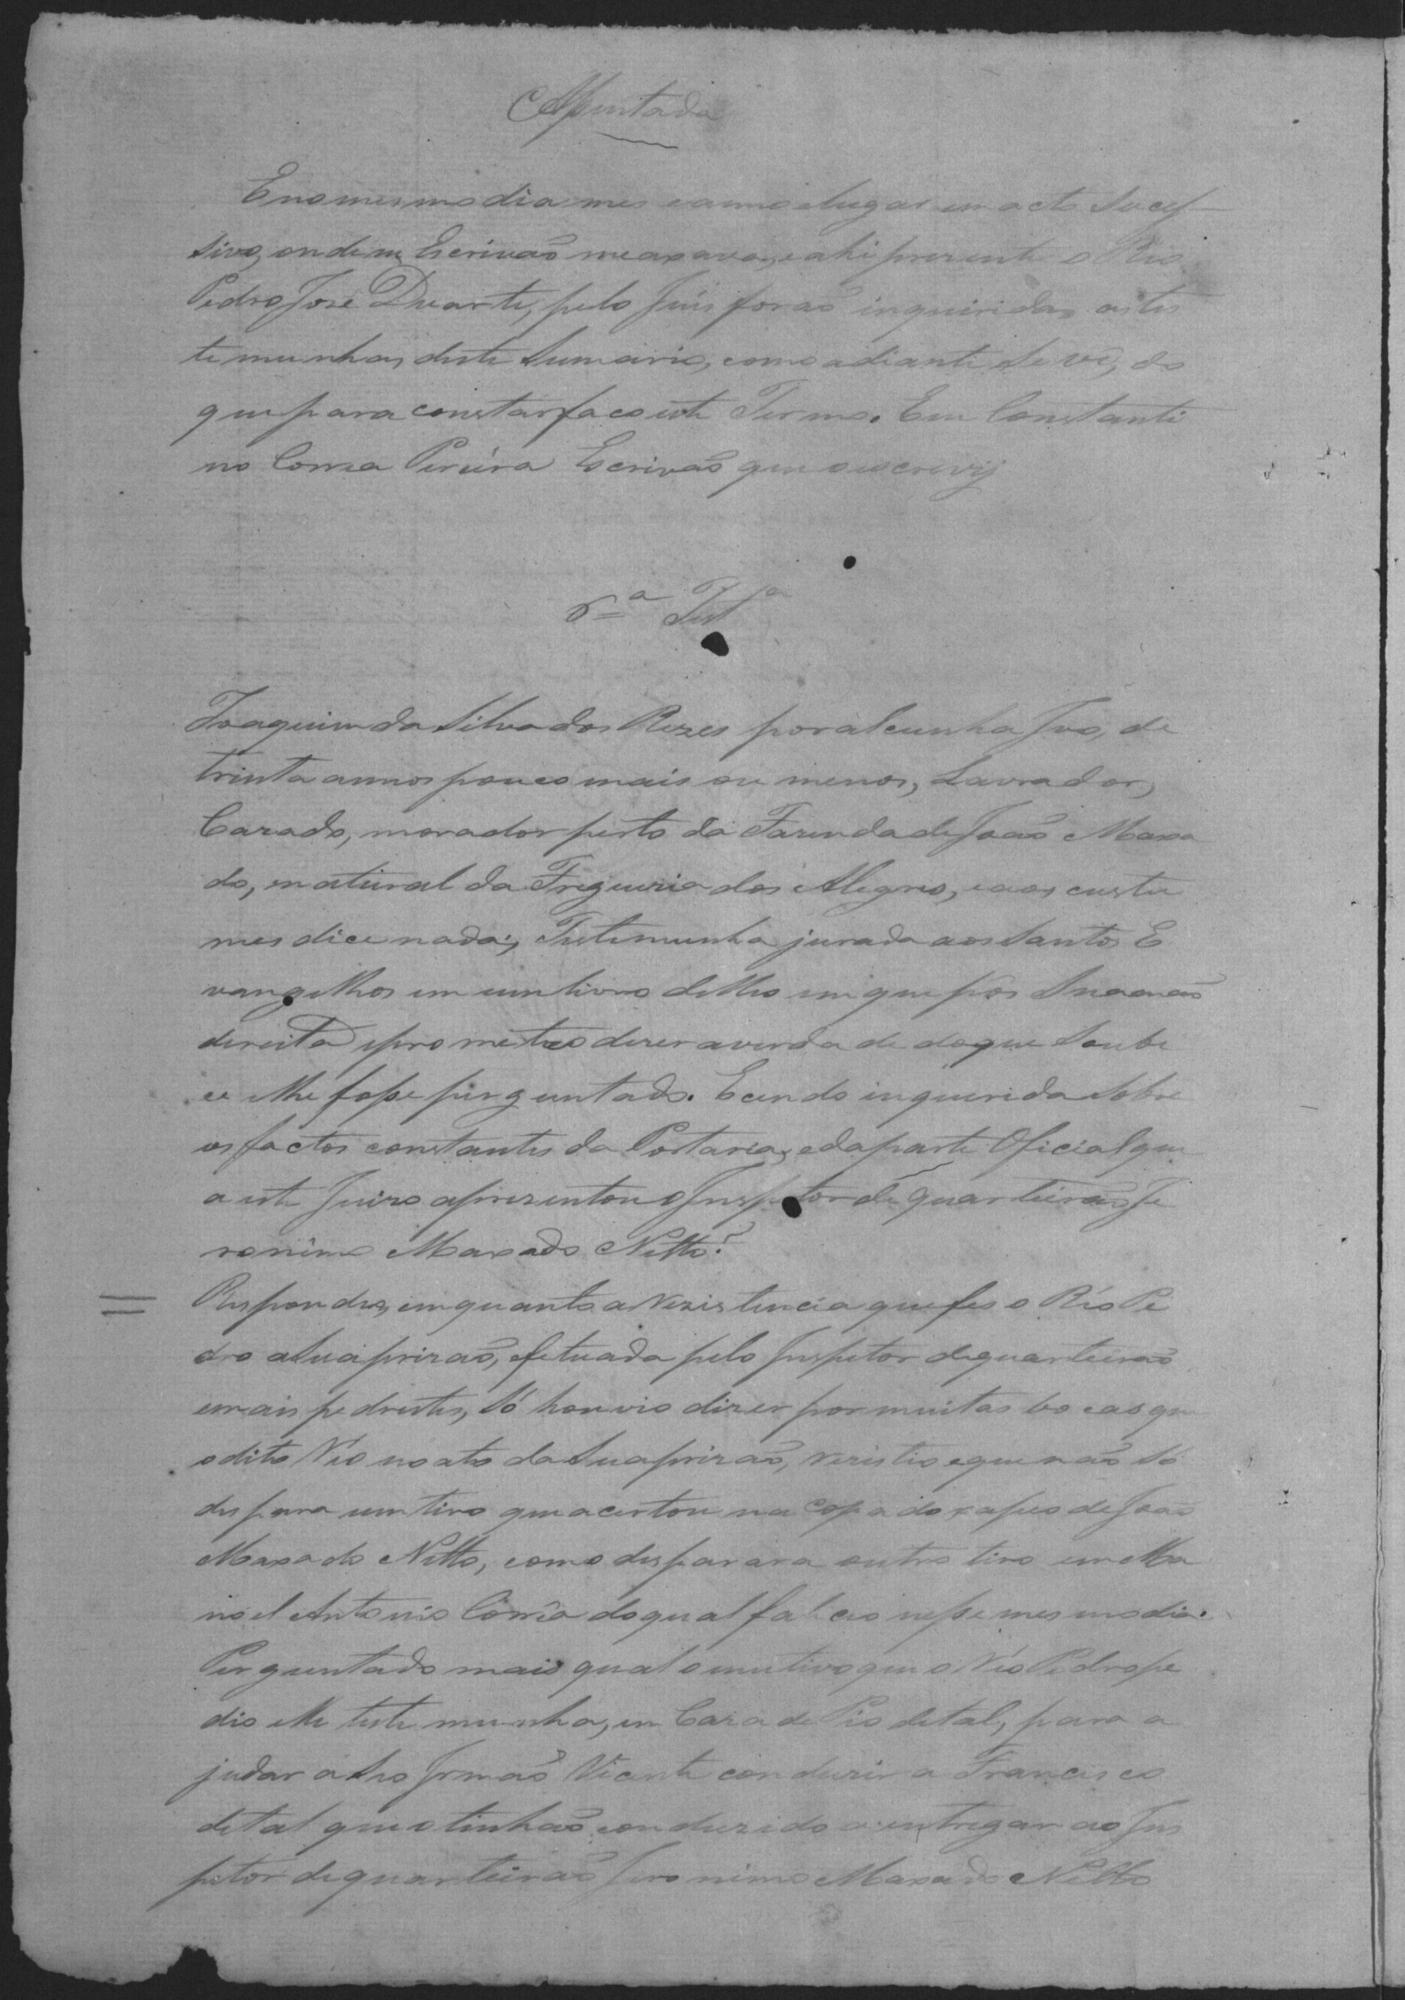 Apentada
E no mesmo dia mes e anno e lugar em acto Suces-
sivo, onde eu Escrivaõ me axava, e ahi prezente o Reo
Pedro Jose Duarte, pelo Juis foraõ inquiridas as tes
temunhas deste Sumario, como adiante se vê, do
que para constar faço este Termo. Eu Constanti
no Correa Pereira Escrivaõ que o escrevy
6ª Testª
Joaquim da Silva dos Rezes por alcunha Juo, de
trinta annos pouco mais ou menos, Lavrador,
Cazado, morador perto da Fazenda de Joaõ Maxa
do, natural da Freguezia dos Alegres, e aos custu
mes dice nada; Testemunha jurada aos Santos E
vangelhos em um livro delles em que pôs Sua maõ
direita e prometeo dizer a verdade do que Soube
ce e lhe fosse perguntado. E cendo inquerida Sobre
os factos constantes da Portaria, e da parte Oficial que
a este Juizo aprezentou o Inspetor de quarteiraõ Je
ronimo Maxado Netto?
Respondeo, em quanto a rezistencia que fes o Rêo Pe
dro a Sua prizaõ, efetuada pelo Inspetor de quarteiraõ
e mais pedrestes, Só houvio dizer por muitas bocas que
o dito Rêo no ato da Sua prizaõ, rezistio e que naõ Só
dispara um tiro que acertou na copa do xapeo de Joaõ
Maxado Netto, como disparara outro tiro em Ma
noel Antonio Corrêa do qual faleceo nesse mesmo dia.
Perguntado mais qual o mutivo que o Rêo Pedro pe
dio elle testemunha, em Caza de Pio de tal, para a
judar a Seo Irmaõ Vicente conduzir a Francisco
de tal que o tinhaõ conduzido a entregar ao Ins
petor de quarteiraõ Jeronimo Maxado Netto